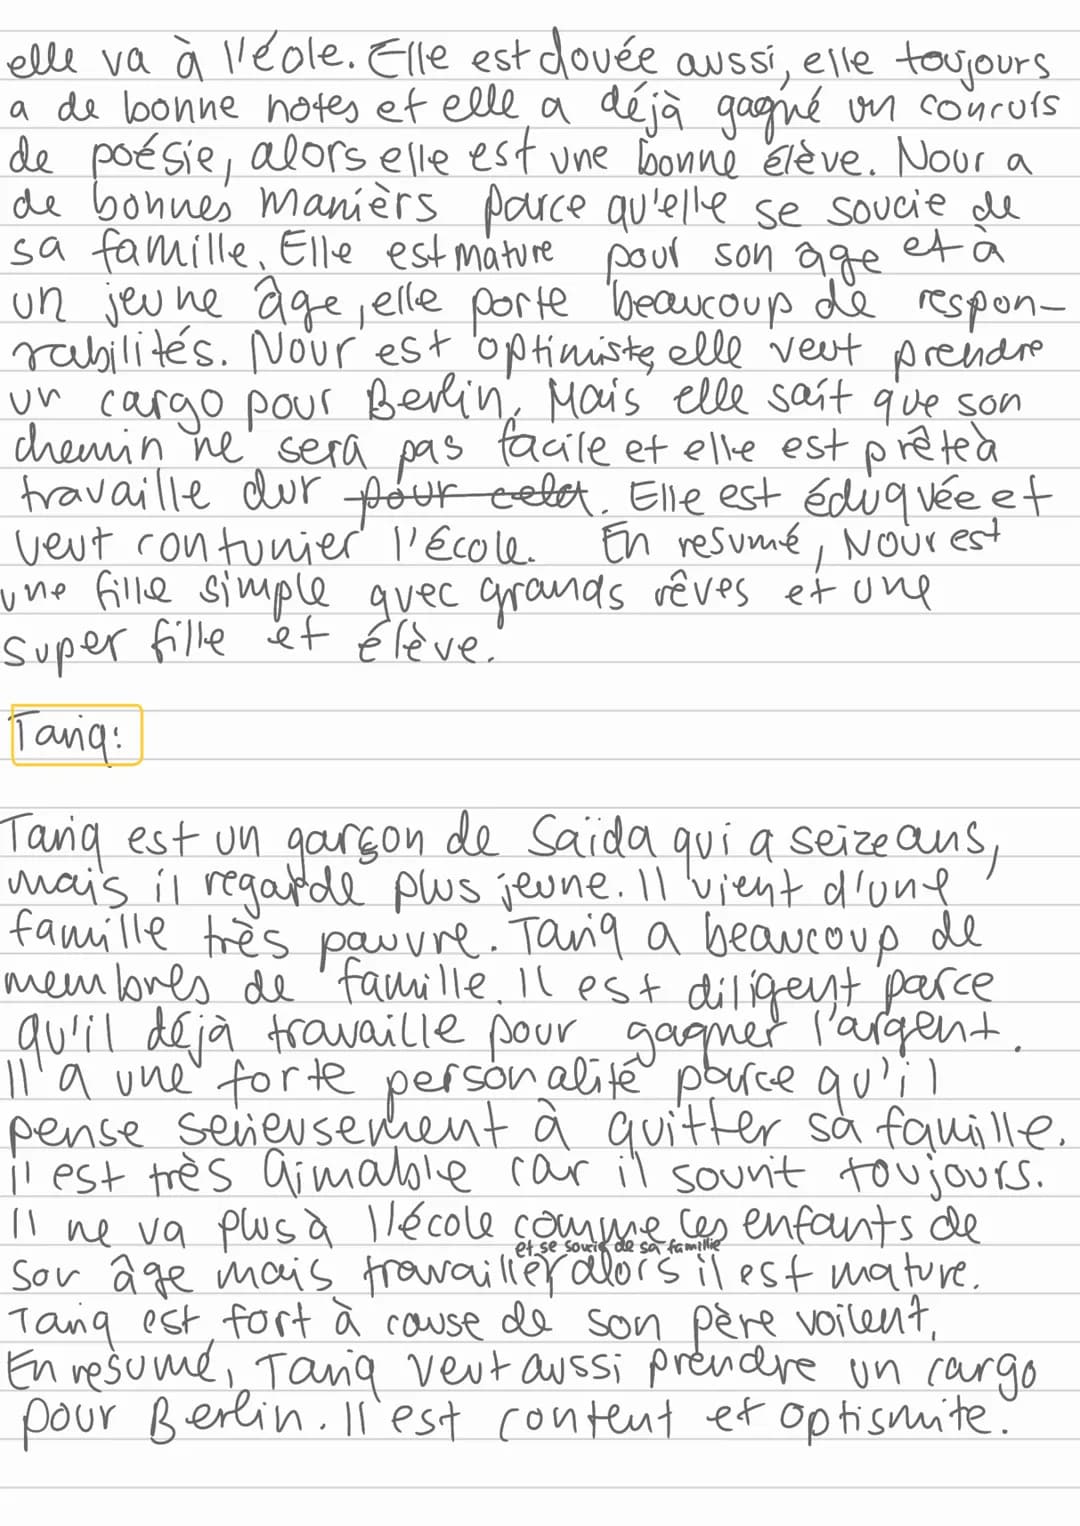 elle va à l'éole. Elle est douée aussi, elle toujours
a de bonne notes et elle a déjà gagné un concuis
de poésie, alors elle est une bonne élève. Nour a
de bonnes manièrs parce qu'elle se soucie de
sa famille. Elle est mature pour son âge et à
un jeune âge, elle porte beaucoup de respon-
sabilités. Nour est optimiste, elle veut prendre
un cargo pour Berlin. Mais elle sait que son
chemin ne sera pas facile et elle est prête à
travaille dur pour cela. Elle est éduquée et
veut contunier l'école. En resumé, Nour est
une fille simple avec grands rêves et une
super fille et élève.
Tariq:
Tariq est un garçon de Saida qui a seize ans,
mais il regarde plus jeune. Il vient d'une
famille très pauvre. Tariq a beaucoup de
membres de famille. Il est diligent parce
qu'il déjà travaille pour gagner l'argent.
Il a une forte personalité parce qu'il
pense serieusement à quitter sa famille.
il est très aimable car il sourit toujours.
Il ne va plus à l'école comme les enfants de
et se soucie de sa famillie
son âge mais travailler alors il est mature.
Tariq est fort à cause de son père voilent.
En resumé, Tariq veut aussi prendre un cargo
pour Berlin. Il est content et optismite.